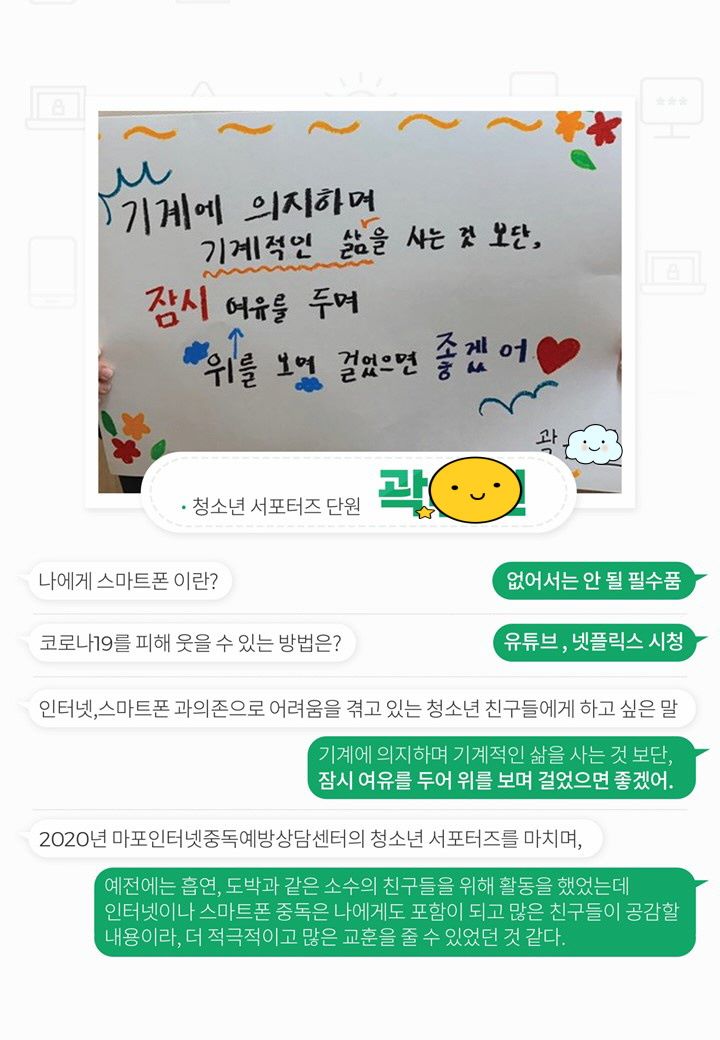 ***
기계에 의지하며
기계적인 삶을 사는 것 보단,
잠시 여유를 두며
위를 보며 걸었으면 좋겠어
곽
· 청소년 서포터즈 단원 곽
나에게 스마트폰 이란?
없어서는 안 될 필수품
코로나19를 피해 웃을 수 있는 방법은?
유튜브 , 넷플릭스 시청
인터넷,스마트폰 과의존으로 어려움을 겪고 있는 청소년 친구들에게 하고 싶은 말
기계에 의지하며 기계적인 삶을 사는 것 보단,
잠시 여유를 두어 위를 보며 걸었으면 좋겠어.
2020년 마포인터넷중독예방상담센터의 청소년 서포터즈를 마치며,
예전에는 흡연, 도박과 같은 소수의 친구들을 위해 활동을 했었는데
인터넷이나 스마트폰 중독은 나에게도 포함이 되고 많은 친구들이 공감할
내용이라, 더 적극적이고 많은 교훈을 줄 수 있었던 것 같다.